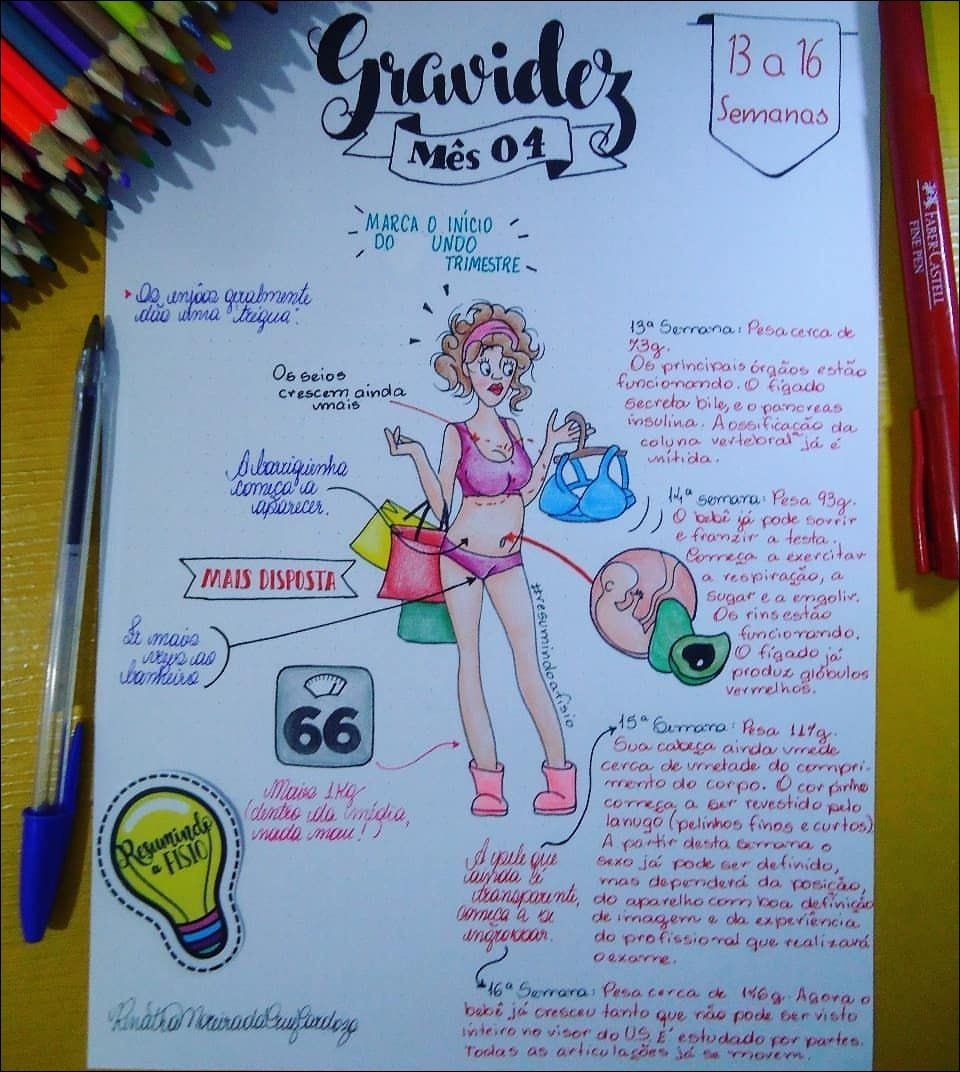 Gravidez
Mês 04
13 a 16
Semanas
MARCA O INÍCIO
DO UNDO
TRIMESTRE
Os enjôos geralmente
dão uma "trégua".
Os seios
crescem ainda
mais
A barriguinha
começa a
aparecer.
MAIS DISPOSTA
mais
vezes ao
banheiro
66
Mais 1Kg
(dentro da média,
nada mau!)
Resumindo
a FISIO
#resumindoafisio
13ª Semana: Pesa cerca de
73g.
Os principais órgãos estão
funcionando. O fígado
secreta bile, e o pâncreas
insulina. A ossificação da
coluna vertebral já é
nítida.
14ª semana: Pesa 93g.
O bebê já pode sorrir
e franzir a testa.
Começa a exercitar
a respiração, a
sugar e a engolir.
Os rins estão
funcionando.
O fígado já
produz glóbulos
vermelhos.
15ª Semana: Pesa 117g.
Sua cabeça ainda mede
cerca de metade do compri-
mento do corpo. O corpinho
começa a ser revestido pelo
lanugo (pelinhos finos e curtos)
A partir desta semana o
sexo já pode ser definido,
mas dependerá da posição,
do aparelho com boa definição
de imagem e da experiência
do profissional que realizará
o exame.
A pele que
ainda é
transparente,
começa a se
engrossar.
16ª Semana: Pesa cerca de 146g. Agora o
bebê já cresceu tanto que não pode ser visto
inteiro no visor do US. É estudado por partes.
Todas as articulações já se movem.
Renátha Moura da Cruz Cardozo
FABER-CASTELL
FINE PEN